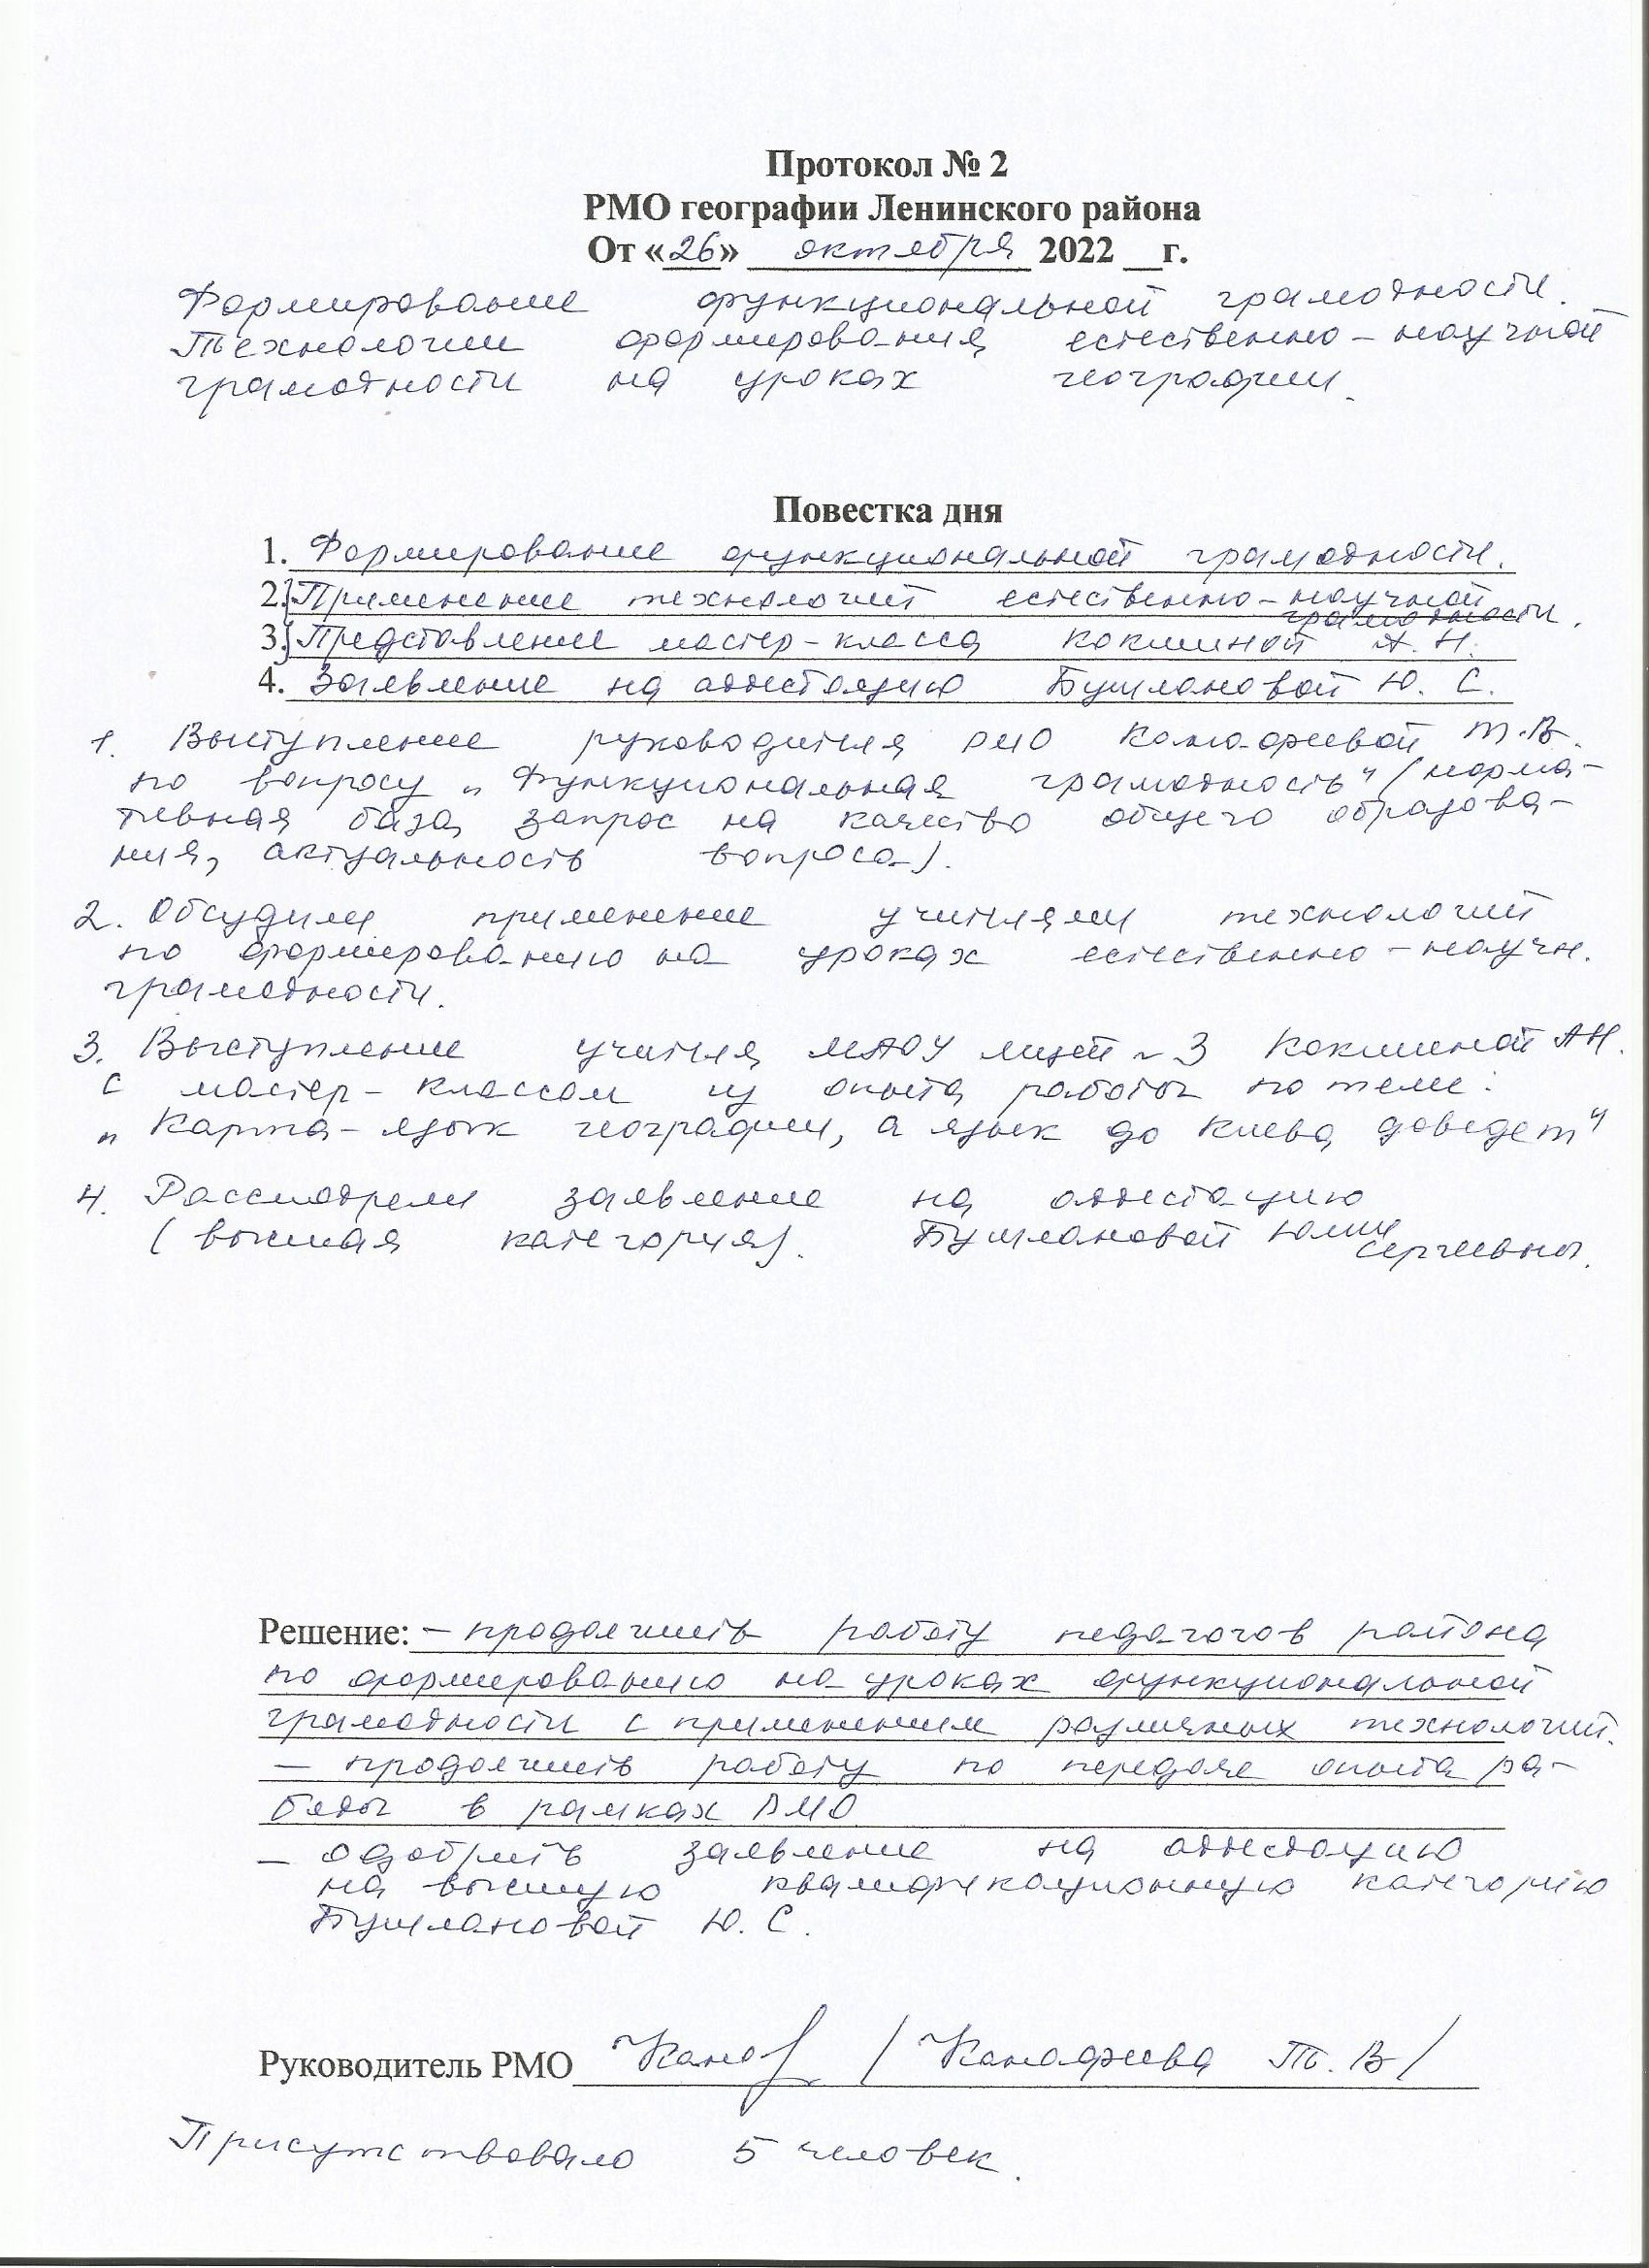 Протокол № 2
РМО географии Ленинского района
От «26» октября 2022 __г.
Формирование функциональной грамотности.
Технологии формирования естественно-научной
грамотности на уроках географии.
Повестка дня
1. Формирование функциональной грамотности.
2. Применение технологий естественно-научной
грамотности.
3. Представление мастер-класса Кокшиной А. Н.
4. Заявление на аттестацию Бушлановой Ю. С.
1. Выступление руководителя РМО Канафиевой Т.В.
по вопросу „Функциональная грамотность" (норма-
тивная база, запрос на качество общего образова-
ния, актуальность вопроса).
2. Обсудили применение учителями технологий
по формированию на уроках естественно-научн.
грамотности.
3. Выступление учителя МАОУ лицей №3 Кокшиной А.Н.
с мастер-классом из опыта работы по теме:
„Карта-язык географии, а язык до Киева доведет"
4. Рассмотрели заявление на аттестацию
(высшая категория). Бушлановой Юлии
Сергеевны.
Решение: - продолжить работу педагогов района
по формированию на уроках функциональной
грамотности с применением различных технологий.
- продолжить работу по передаче опыта ра-
боты в рамках РМО
- одобрить заявление на аттестацию
на высшую квалификационную категорию
Бушлановой Ю. С.
Руководитель РМО /Канафиева Т. В/
Присутствовало 5 человек.